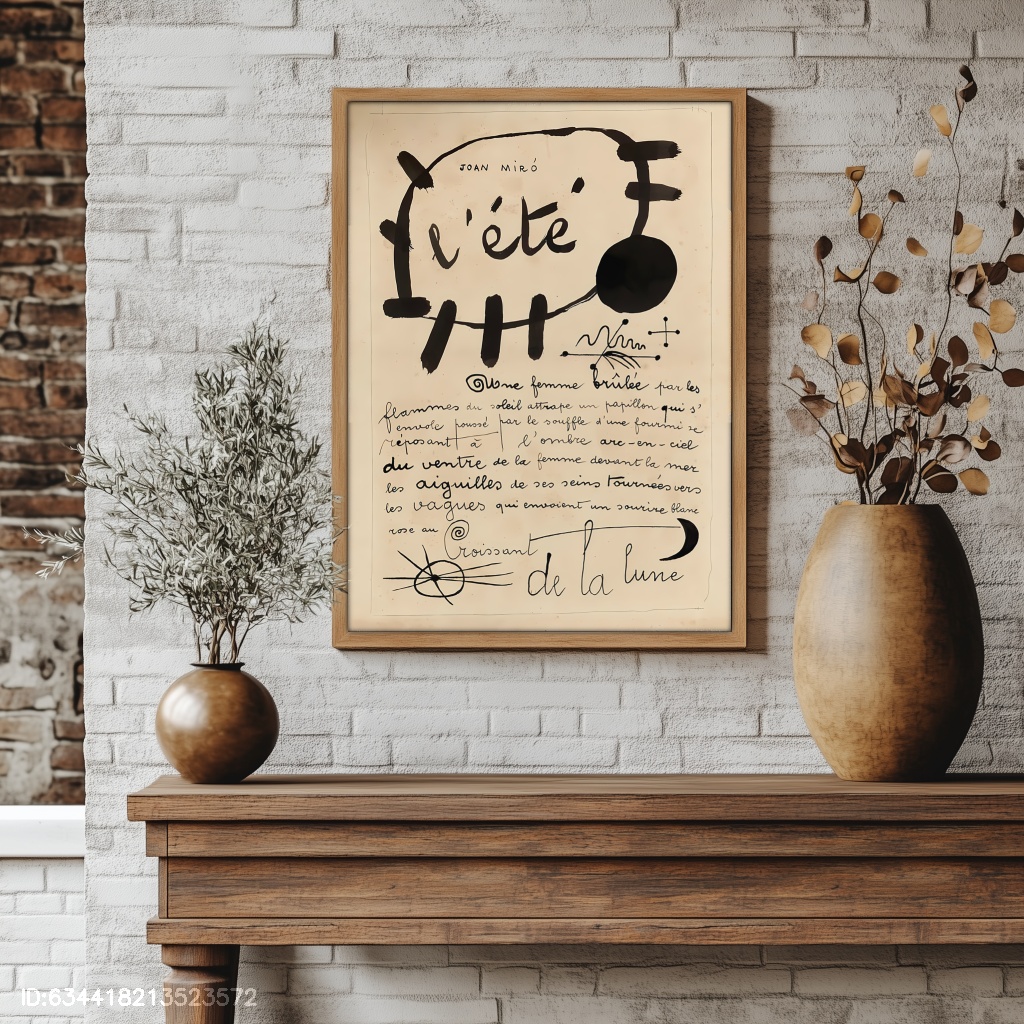 JOAN MIRÓ
l'été
Une femme brûlée par les
flammes du soleil attrape un papillon qui s'
envole poussé par le souffle d'une fourmi se
réposant à l'ombre arc-en-ciel
du ventre de la femme devant la mer
les aiguilles de ses seins tournées vers
les vagues qui envoient un sourire blanc
rose au Croissant
de la lune
ID:634418213523572